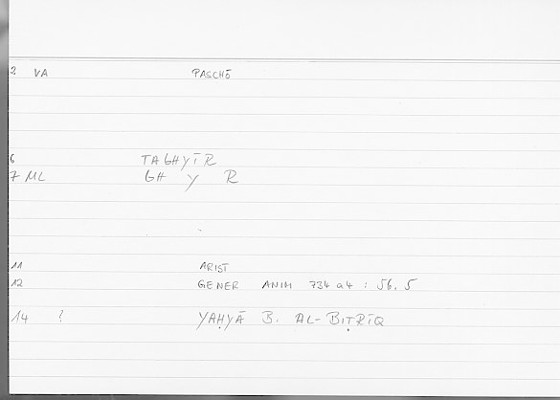 2 VA PASCHŌ
6 TAGHYĪR
7 ML GH Y R
11 ARIST
12 GENER ANIM 734 a4 : 56.5
14 ? YAḤYĀ B. AL-BIṬRĪQ